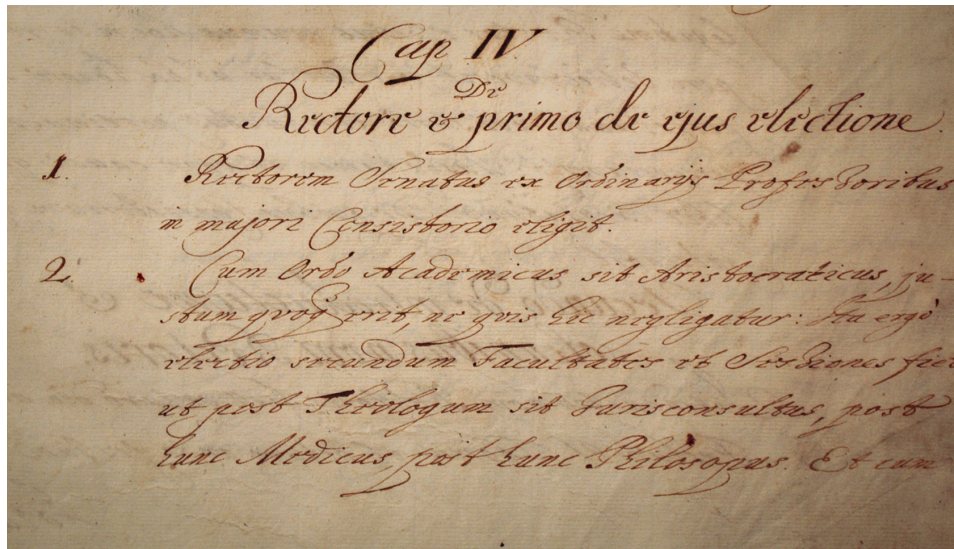 Cap IV.
De
Rectore & primo de ejus electione.
1. Rectorem Senatus ex Ordinarijs Professoribus
in majori Consistorio eligit.
2. Cum Ordo Academicus sit Aristocraticus, ju-
stum qvoq erit, ne qvis hic negligatur: Ita ergò
electio secundum Facultates et Sessiones fiet
ut post Theologum sit Jurisconsultus, post
hunc Medicus, post hunc Philosopus. Et cum